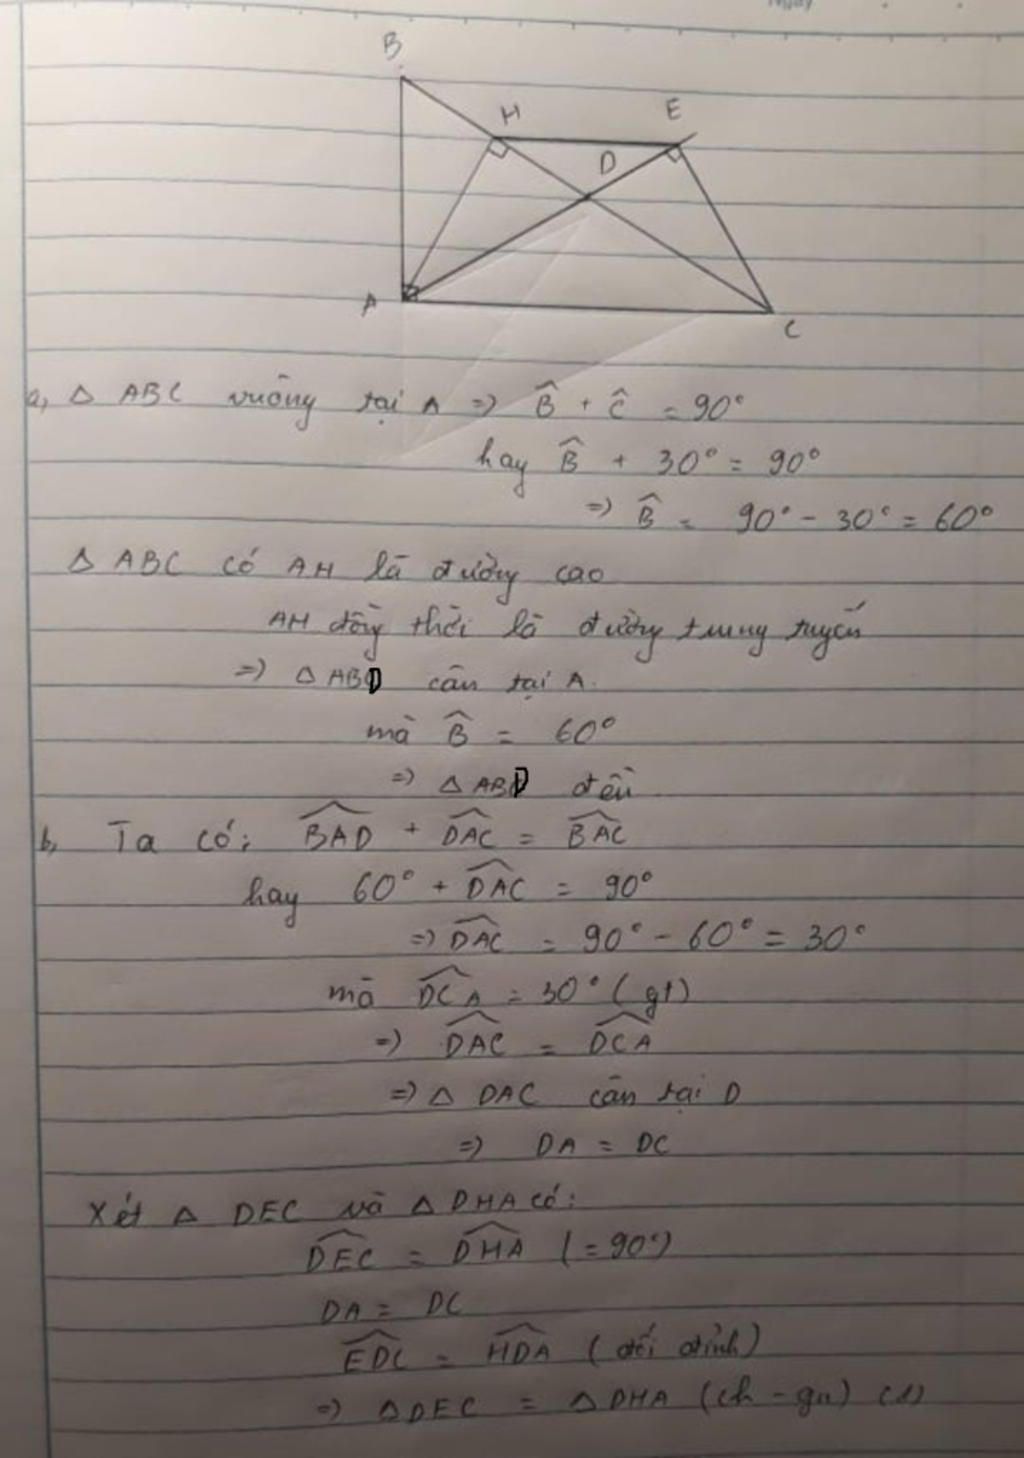 Ngày
B
H
E
D
A
C
a, Δ ABC vuông tại A => B̂ + Ĉ = 90°
hay B̂ + 30° = 90°
=> B̂ = 90° - 30° = 60°
Δ ABC có AH là đường cao
AH đồng thời là đường trung tuyến
=> Δ ABD cân tại A.
mà B̂ = 60°
=> Δ ABD đều
b, Ta có: \widehat{BAD} + \widehat{DAC} = \widehat{BAC}
hay 60° + \widehat{DAC} = 90°
=> \widehat{DAC} = 90° - 60° = 30°
mà \widehat{DCA} = 30° (gt)
=> \widehat{DAC} = \widehat{DCA}
=> Δ DAC cân tại D
=> DA = DC
Xét Δ DEC và Δ DHA có:
\widehat{DEC} = \widehat{DHA} (= 90°)
DA = DC
\widehat{EDC} = \widehat{HDA} (đối đỉnh)
=> Δ DEC = Δ DHA (ch - gn) (1)